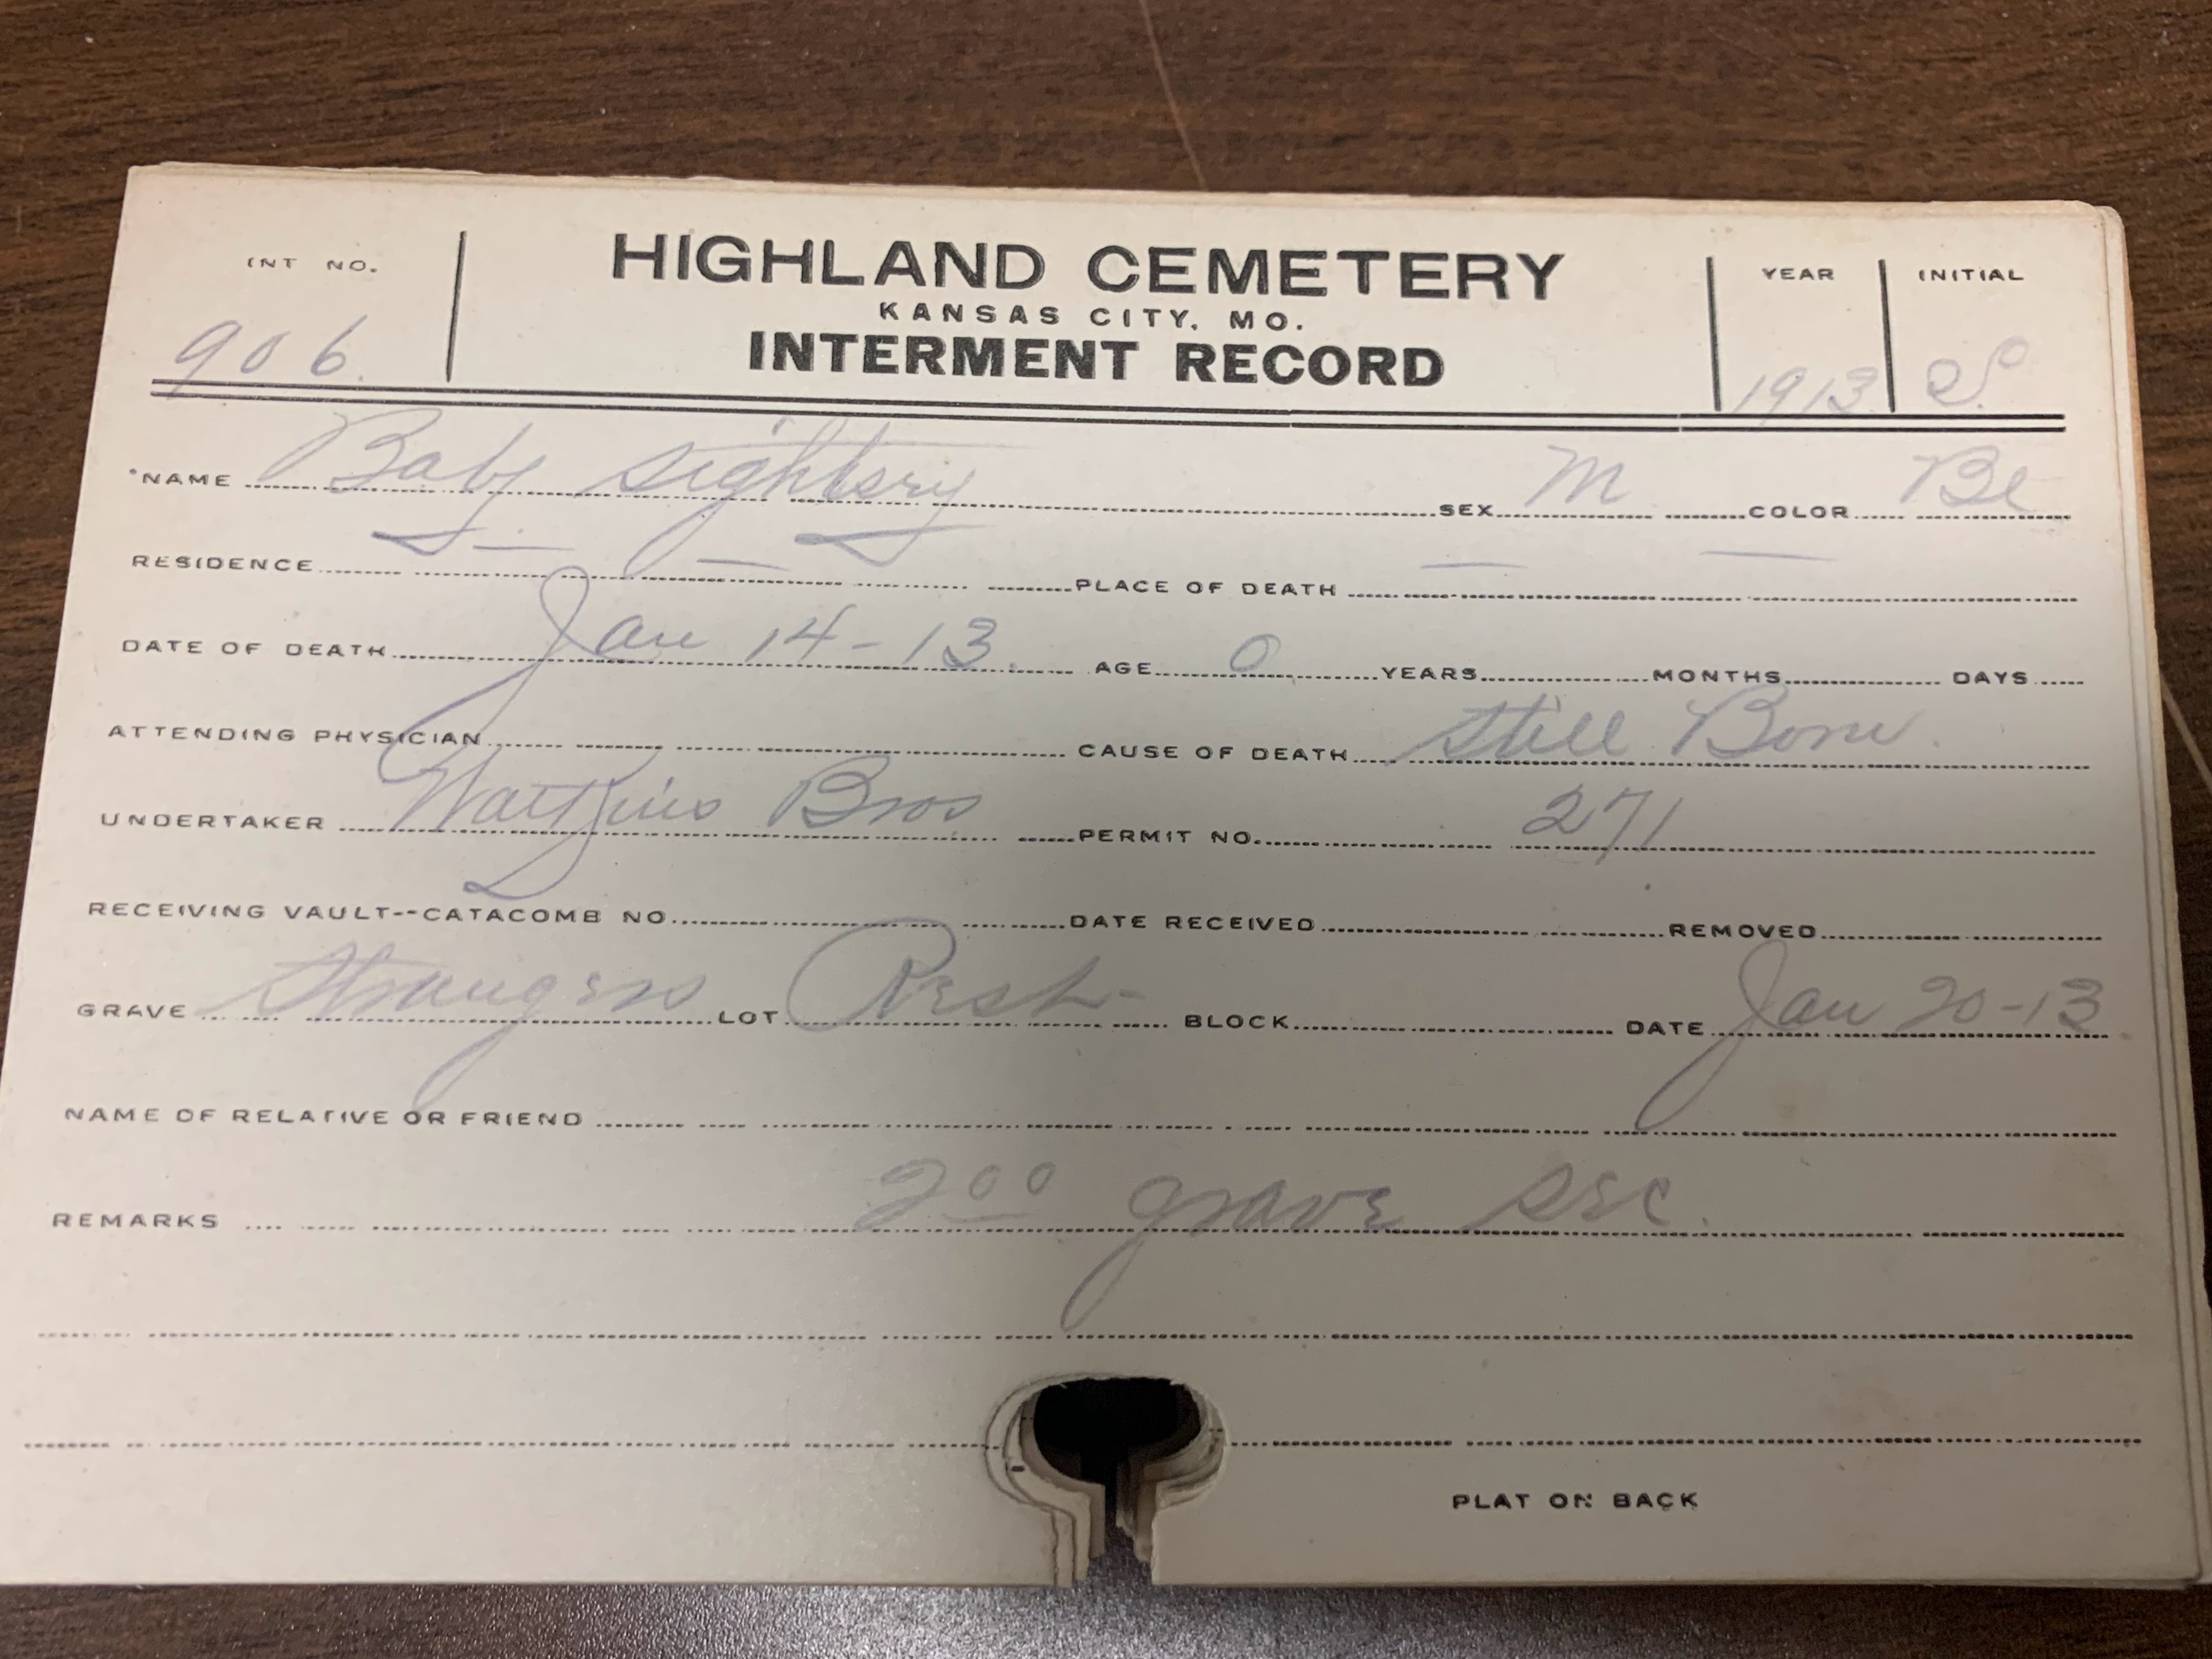 INT NO. HIGHLAND CEMETERY YEAR INITIAL
KANSAS CITY, MO.
906. INTERMENT RECORD 1913 S.
NAME Baby SEX M COLOR Bl
RESIDENCE — — PLACE OF DEATH — —
DATE OF DEATH Jan 14-13. AGE 0 YEARS MONTHS DAYS
ATTENDING PHYSICIAN CAUSE OF DEATH Still Born.
UNDERTAKER Watkins Bros PERMIT NO. 271
RECEIVING VAULT--CATACOMB NO. DATE RECEIVED REMOVED
GRAVE Strangers LOT Rest- BLOCK DATE Jan 20-13
NAME OF RELATIVE OR FRIEND
REMARKS 200 grave sec.
PLAT ON BACK